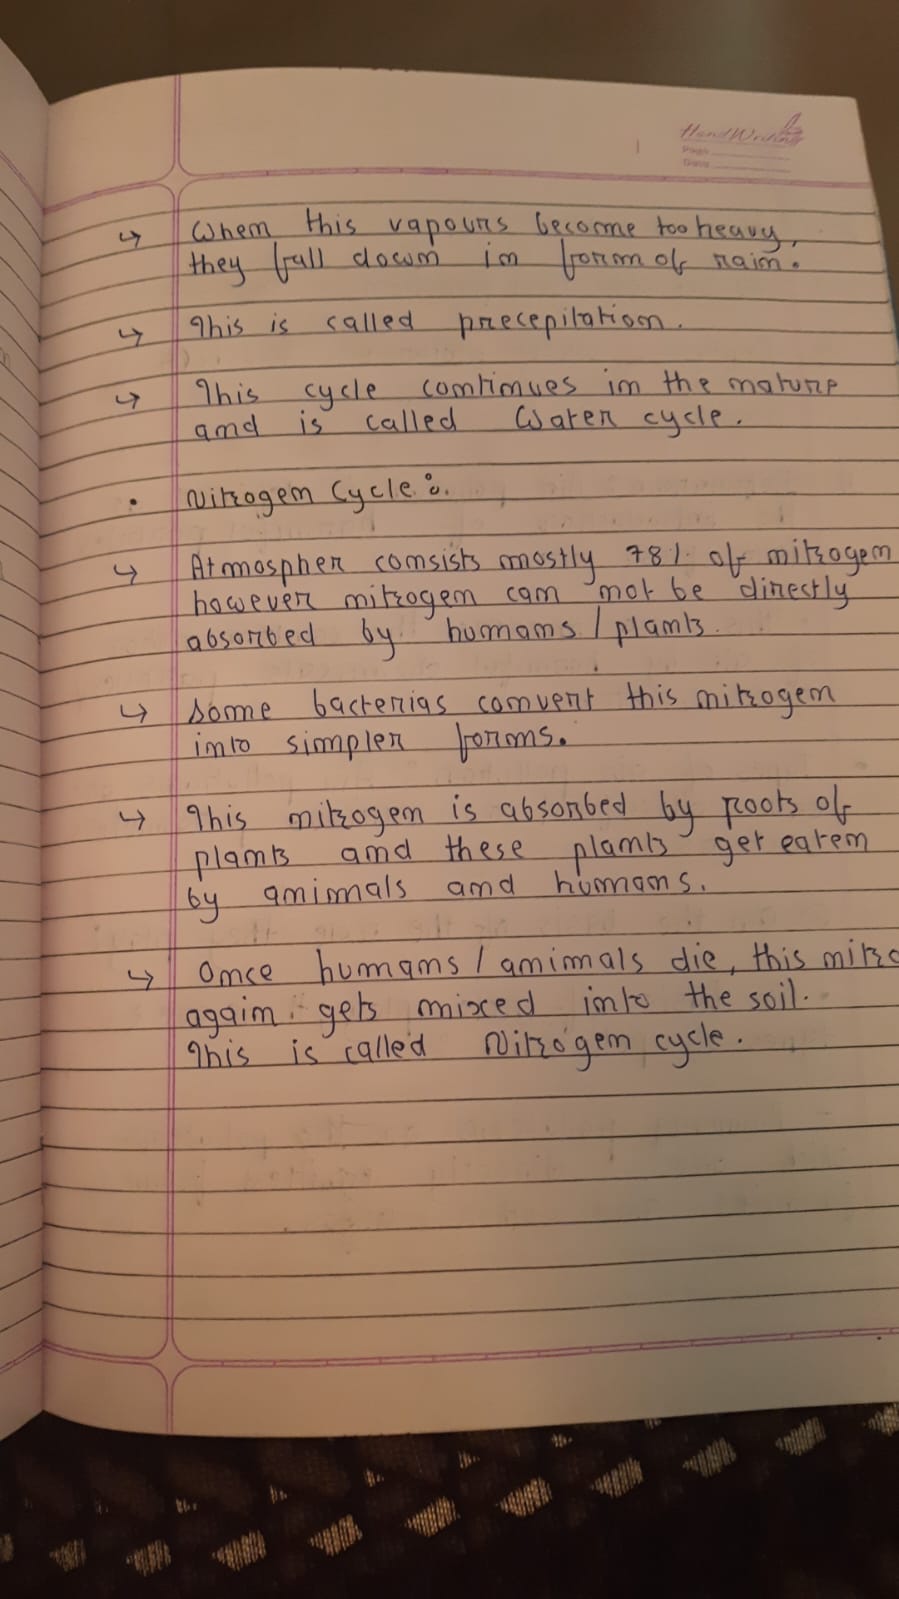 HandWriting
Page
Date
↳ When this vapours become too heavy,
they fall down in form of rain.
↳ This is called precepilation.
↳ This cycle continues in the nature
and is called Water cycle.
• Nitrogen Cycle :.
↳ Atmospher consists mostly 78% of nitrogen
however nitrogen can not be directly
absorbed by humans / plants.
↳ Some bacterias convert this nitrogen
into simpler forms.
↳ This nitrogen is absorbed by roots of
plants and these plants get eaten
by animals and humans.
↳ Once humans / animals die, this nitro
again gets mixed into the soil.
This is called Nitrogen cycle.